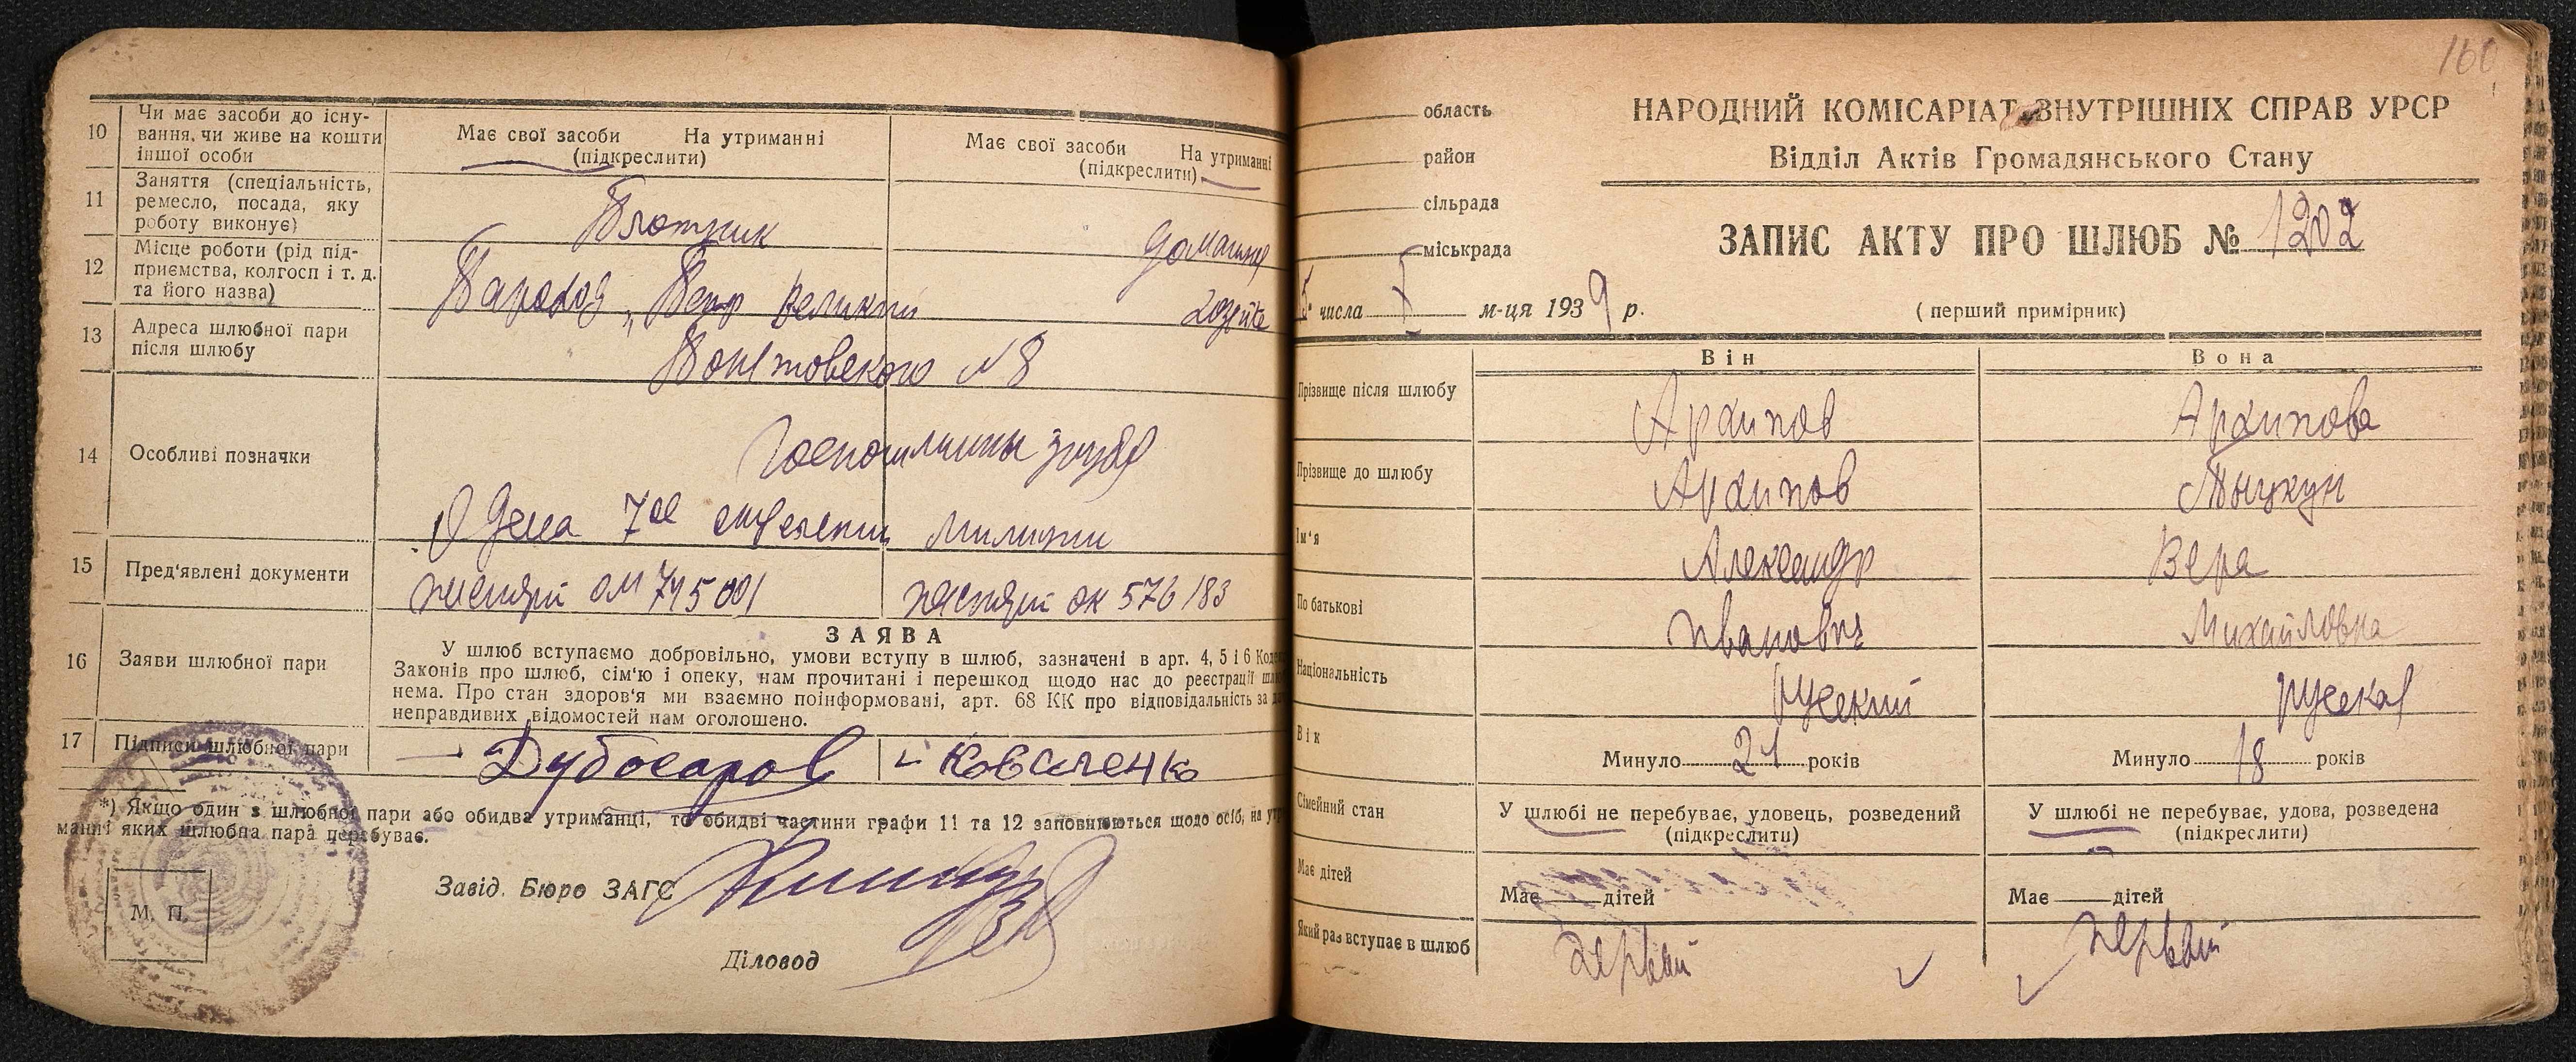 10 Чи має засоби до існу-
вання, чи живе на кошти
іншої особи
Має свої засоби На утриманні
(підкреслити)
Має свої засоби На утриманні
(підкреслити)
11 Заняття (спеціальність,
ремесло, посада, яку
роботу виконує)
Плотник
12 Місце роботи (рід під-
приємства, колгосп і т. д.
та його назва)
Пароход „Петр Великий
13 Адреса шлюбної пари
після шлюбу
№ 8
14 Особливі позначки
Госпошлины
Одесса 7ое отделения милиции
15 Пред'явлені документи
паспорт ом 745001
паспорт ок 576183
16 Заяви шлюбної пари
ЗАЯВА
У шлюб вступаємо добровільно, умови вступу в шлюб, зазначені в арт. 4, 5 і 6
Законів про шлюб, сім'ю і опеку, нам прочитані і перешкод щодо нас до реєстрації
нема. Про стан здоров'я ми взаємно поінформовані, арт. 68 КК про відповідальність за
неправдивих відомостей нам оголошено.
17 Підписи шлюбної пари
Дубосаров
Коваленко
*) Якщо один з шлюбної пари або обидва утриманці, то обидві частини графи 11 та 12 заповнюються щодо осіб, на
манні яких шлюбна пара перебуває.
Завід. Бюро ЗАГС
М. П.
Діловод
160
область
район
сільрада
міськрада
НАРОДНИЙ КОМІСАРІАТ ВНУТРІШНІХ СПРАВ УРСР
Відділ Актів Громадянського Стану
ЗАПИС АКТУ ПРО ШЛЮБ № 1202
5 числа м-ця 1939 р.
(перший примірник)
Він
Вона
Прізвище після шлюбу
Архипов
Архипова
Прізвище до шлюбу
Архипов
Ім'я
Александр
Вера
По батькові
Иванович
Михайловна
Національність
русский
русская
Вік
Минуло 21 років
Минуло 18 років
Сімейний стан
У шлюбі не перебуває, уловець, розведений
(підкреслити)
У шлюбі не перебуває, удова, розведена
(підкреслити)
Має дітей
Має дітей
Має дітей
Який раз вступає в шлюб
первый
первый